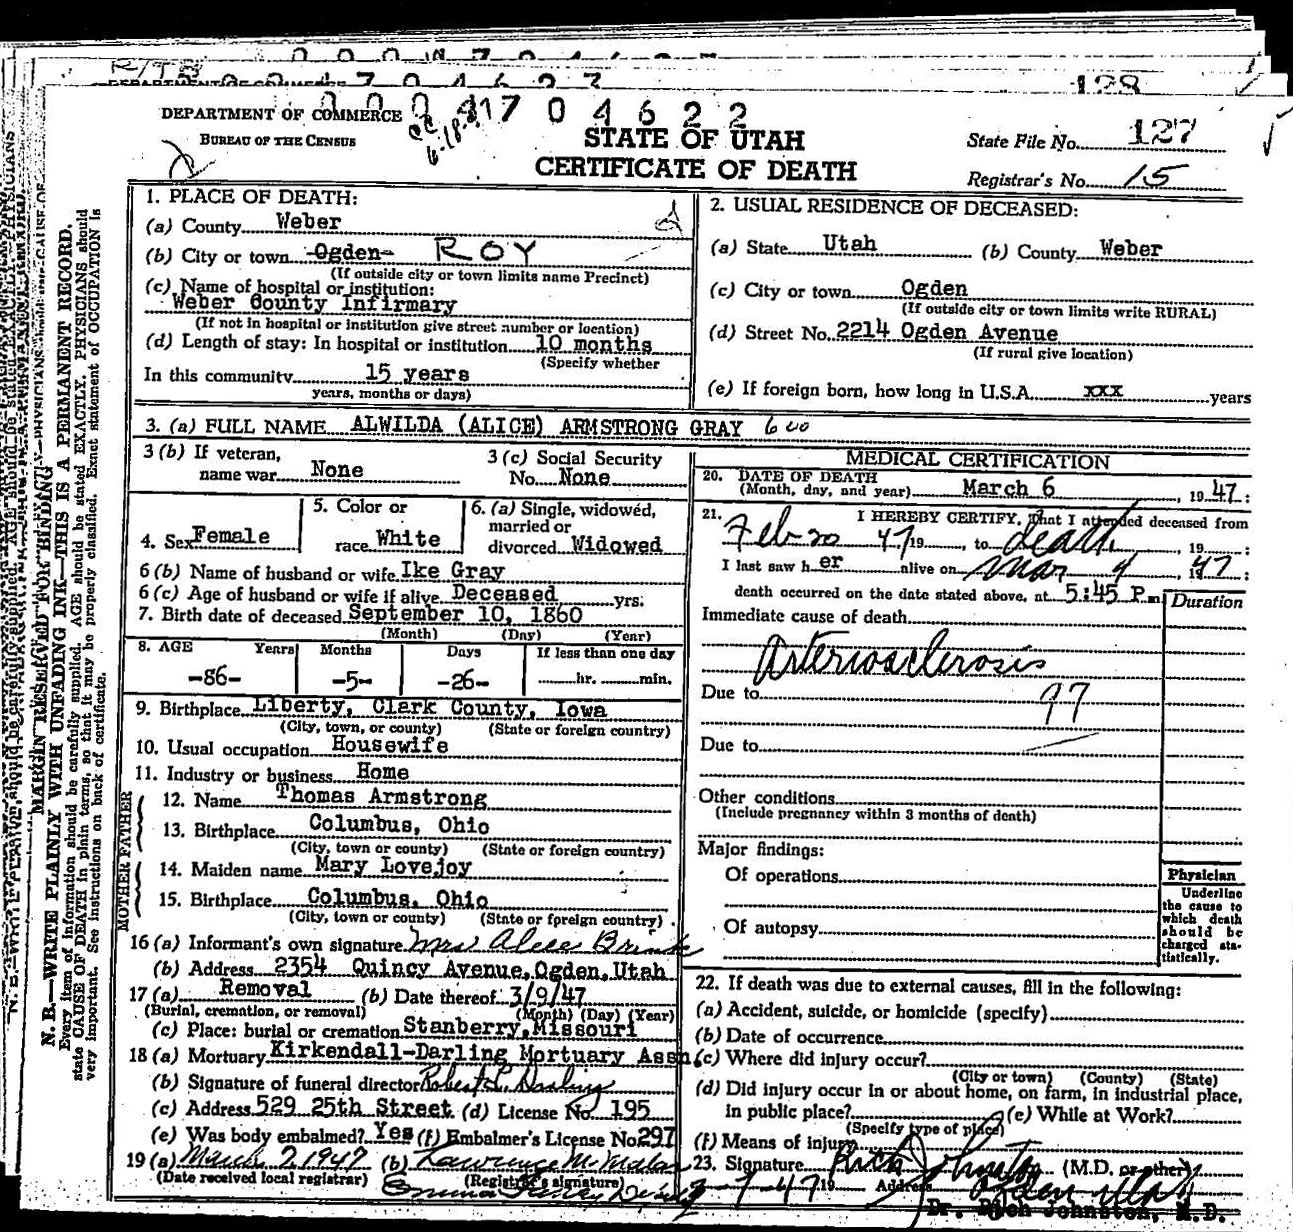 DEPARTMENT OF COMMERCE
BUREAU OF THE CENSUS
704622
STATE OF UTAH
CERTIFICATE OF DEATH
State File No. 127
Registrar's No. 15
MARGIN RESERVED FOR BINDING
N. B.—WRITE PLAINLY WITH UNFADING INK—THIS IS A PERMANENT RECORD.
Every item of information should be carefully supplied. AGE should be stated EXACTLY. PHYSICIANS should
state CAUSE OF DEATH in plain terms, so that it may be properly classified. Exact statement of OCCUPATION is
very important. See instructions on back of certificate.
1. PLACE OF DEATH:
(a) County Weber
(b) City or town Ogden ROY
(If outside city or town limits name Precinct)
(c) Name of hospital or institution:
Weber County Infirmary
(If not in hospital or institution give street number or location)
(d) Length of stay: In hospital or institution 10 months
(Specify whether
In this community 15 years
years, months or days)
2. USUAL RESIDENCE OF DECEASED:
(a) State Utah (b) County Weber
(c) City or town Ogden
(If outside city or town limits write RURAL)
(d) Street No. 2214 Ogden Avenue
(If rural give location)
(e) If foreign born, how long in U.S.A. xxx years
3. (a) FULL NAME ALWILDA (ALICE) ARMSTRONG GRAY 600
3 (b) If veteran,
name war None
3 (c) Social Security
No. None
4. Sex Female
5. Color or
race White
6. (a) Single, widowed,
married or
divorced Widowed
6 (b) Name of husband or wife Ike Gray
6 (c) Age of husband or wife if alive Deceased yrs.
7. Birth date of deceased September 10, 1860
(Month) (Day) (Year)
8. AGE Years Months Days If less than one day
-86- -5- -26- hr. min.
9. Birthplace Liberty, Clark County, Iowa
(City, town, or county) (State or foreign country)
10. Usual occupation Housewife
11. Industry or business Home
FATHER
12. Name Thomas Armstrong
13. Birthplace Columbus, Ohio
(City, town or county) (State or foreign country)
MOTHER
14. Maiden name Mary Lovejoy
15. Birthplace Columbus, Ohio
(City, town or county) (State or foreign country)
16 (a) Informant's own signature Mrs Alice Brink
(b) Address 2354 Quincy Avenue, Ogden, Utah
17 (a) Removal (b) Date thereof 3/9/47
(Burial, cremation, or removal) (Month) (Day) (Year)
(c) Place: burial or cremation Stanberry, Missouri
18 (a) Mortuary Kirkendall-Darling Mortuary Assn.
(b) Signature of funeral director Robert L. Darling
(c) Address 529 25th Street (d) License No. 195
(e) Was body embalmed? Yes (f) Embalmer's License No. 297
19 (a) March 7, 1947 (b)
(Date received local registrar) (Registrar's signature)
MEDICAL CERTIFICATION
20. DATE OF DEATH
(Month, day, and year) March 6, 1947:
21. I HEREBY CERTIFY, That I attended deceased from
Feb 20 47 19 , to death , 19 :
I last saw her alive on Mar 4, 1947:
death occurred on the date stated above, at 5:45 P.m.
Duration
Immediate cause of death
Arteriosclerosis
Due to 97
Due to
Other conditions
(Include pregnancy within 3 months of death)
Major findings:
Of operations
Of autopsy
Physician
Underline
the cause to
which death
should be
charged sta-
tistically.
22. If death was due to external causes, fill in the following:
(a) Accident, suicide, or homicide (specify)
(b) Date of occurrence
(c) Where did injury occur?
(City or town) (County) (State)
(d) Did injury occur in or about home, on farm, in industrial place,
in public place? (e) While at Work?
(Specify type of place)
(f) Means of injury
23. Signature Rich Johnston (M.D. or other)
3-7-47 19 Address Ogden Utah
Dr. Rich Johnston, M.D.